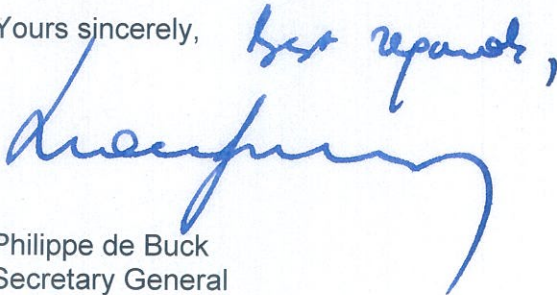 Yours sincerely, Best regards,
Philippe de Buck
Secretary General